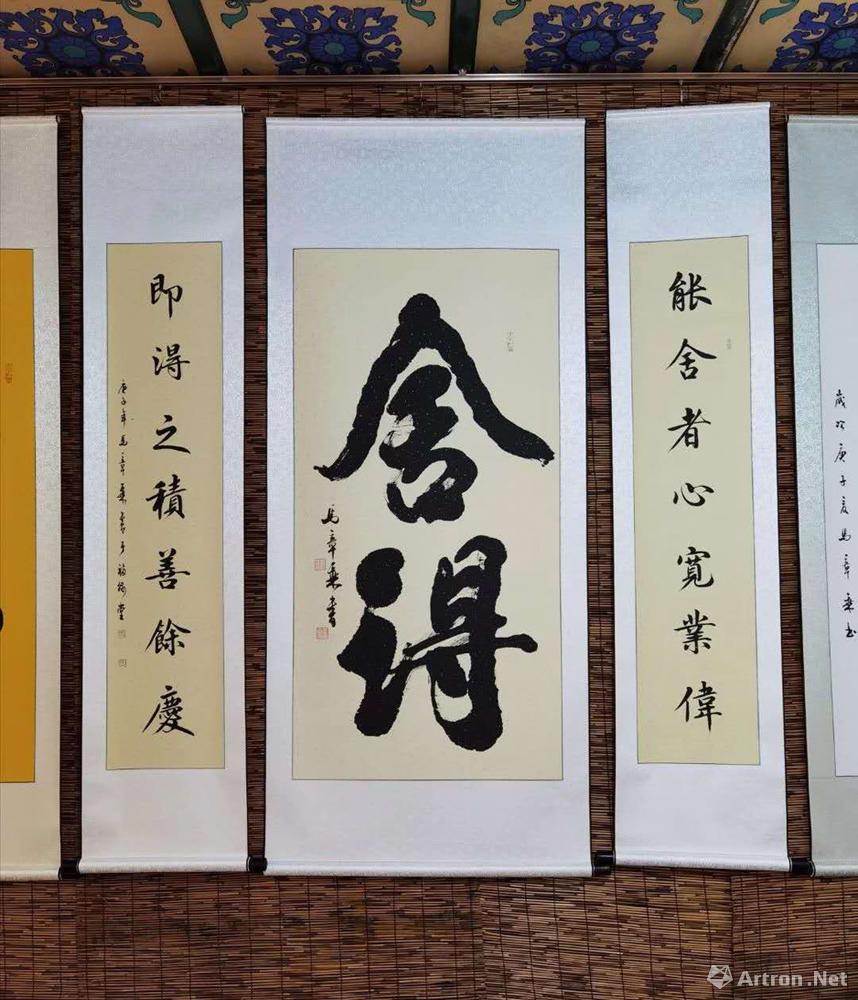 歲次庚子夏馬章乘書
能舍者心寬業偉
舍得
馬章乘書
即得之積善餘慶
庚子年馬章乘書于福榭堂
Artron.Net